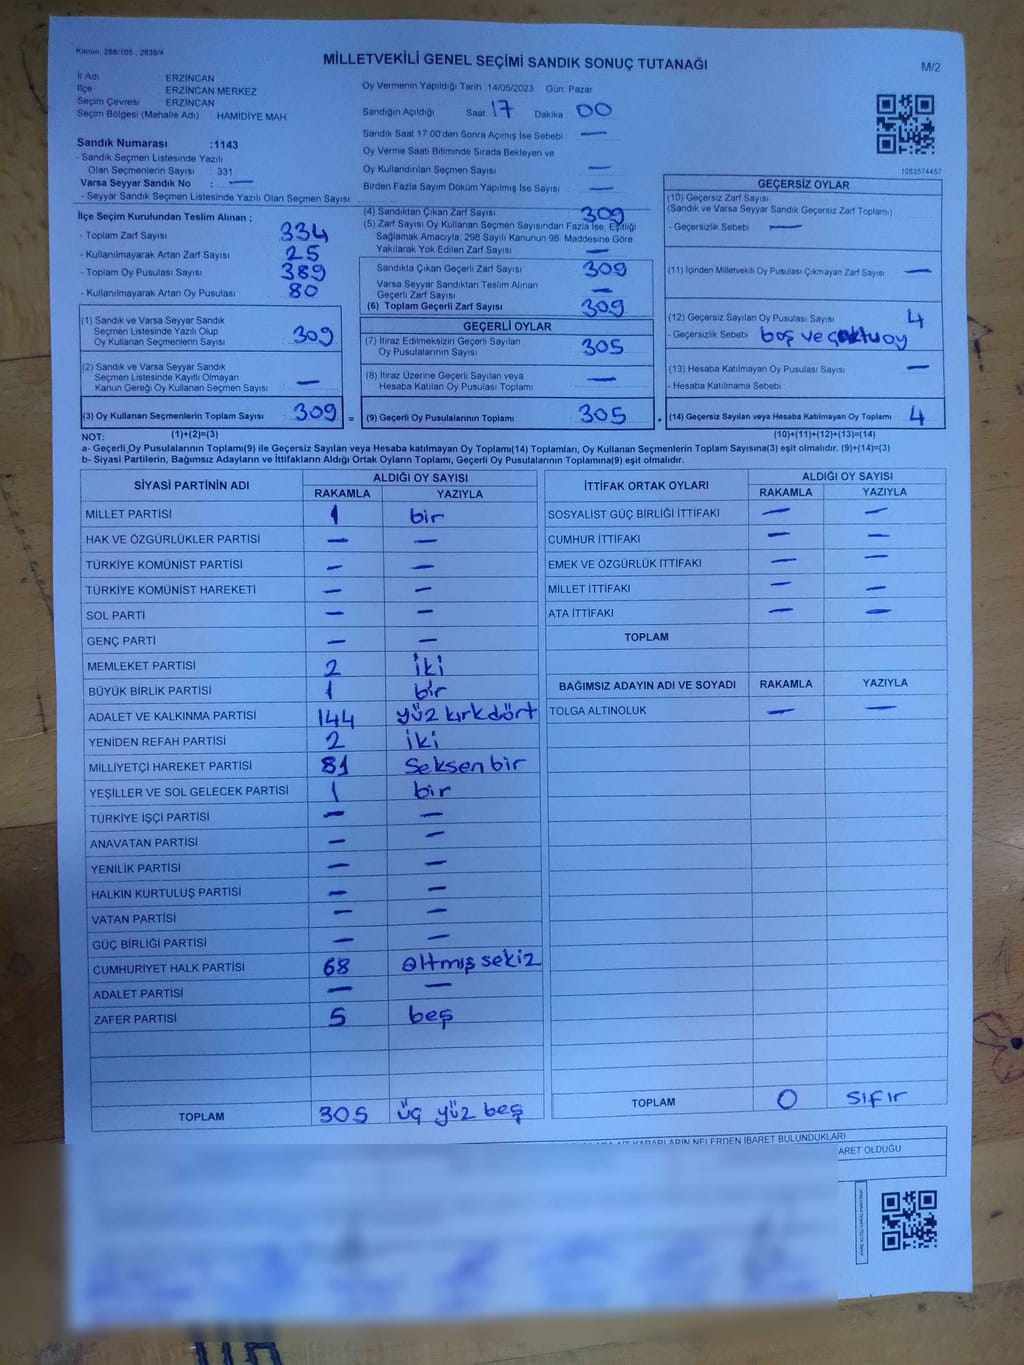 Kanun: 298/105 , 2839/4
MİLLETVEKİLİ GENEL SEÇİMİ SANDIK SONUÇ TUTANAĞI
M/2
İl Adı : ERZİNCAN
İlçe : ERZİNCAN MERKEZ
Seçim Çevresi : ERZİNCAN
Seçim Bölgesi (Mahalle Adı) : HAMİDİYE MAH
Sandık Numarası :1143
- Sandık Seçmen Listesinde Yazılı
Olan Seçmenlerin Sayısı 331
Varsa Seyyar Sandık No : —
- Seyyar Sandık Seçmen Listesinde Yazılı Olan Seçmen Sayısı:
Oy Vermenin Yapıldığı Tarih :14/05/2023 Gün: Pazar
Sandığın Açıldığı Saat: 17 Dakika 00
Sandık Saat 17:00'den Sonra Açımış İse Sebebi : —
Oy Verme Saati Bitiminde Sırada Bekleyen ve
Oy Kullandırılan Seçmen Sayısı —
Birden Fazla Sayım Döküm Yapılmış İse Sayısı —
1083574457
İlçe Seçim Kurulundan Teslim Alınan ;
- Toplam Zarf Sayısı 334
- Kullanılmayarak Artan Zarf Sayısı : 25
- Toplam Oy Pusulası Sayısı 389
- Kullanılmayarak Artan Oy Pusulası 80
(1) Sandık ve Varsa Seyyar Sandık
Seçmen Listesinde Yazılı Olup
Oy Kullanan Seçmenlerin Sayısı 309
(2) Sandık ve Varsa Seyyar Sandık
Seçmen Listesinde Kayıtlı Olmayan
Kanun Gereği Oy Kullanan Seçmen Sayısı —
(3) Oy Kullanan Seçmenlerin Toplam Sayısı : 309 =
(1)+(2)=(3)
(4) Sandıktan Çıkan Zarf Sayısı 309
(5) Zarf Sayısı Oy Kullanan Seçmen Sayısından Fazla İse, Eşitliği
Sağlamak Amacıyla, 298 Sayılı Kanunun 98. Maddesine Göre
Yakılarak Yok Edilen Zarf Sayısı —
Sandıkta Çıkan Geçerli Zarf Sayısı 309
Varsa Seyyar Sandıktan Teslim Alınan
Geçerli Zarf Sayısı —
(6) Toplam Geçerli Zarf Sayısı 309
GEÇERLİ OYLAR
(7) İtiraz Edilmeksizin Geçerli Sayılan
Oy Pusulalarının Sayısı 305
(8) İtiraz Üzerine Geçerli Sayılan veya
Hesaba Katılan Oy Pusulası Toplamı —
(9) Geçerli Oy Pusulalarının Toplamı 305 +
GEÇERSİZ OYLAR
(10) Geçersiz Zarf Sayısı
(Sandık ve Varsa Seyyar Sandık Geçersiz Zarf Toplamı)
- Geçersizlik Sebebi —
(11) İçinden Milletvekili Oy Pusulası Çıkmayan Zarf Sayısı —
(12) Geçersiz Sayılan Oy Pusulası Sayısı 4
- Geçersizlik Sebebi boş ve
(13) Hesaba Katılmayan Oy Pusulası Sayısı —
- Hesaba Katılmama Sebebi
(14) Geçersiz Sayılan veya Hesaba Katılmayan Oy Toplamı 4
(10)+(11)+(12)+(13)=(14)
NOT:
a- Geçerli Oy Pusulalarının Toplamı(9) ile Geçersiz Sayılan veya Hesaba katılmayan Oy Toplamı(14) Toplamları, Oy Kullanan Seçmenlerin Toplam Sayısına(3) eşit olmalıdır. (9)+(14)=(3)
b- Siyasi Partilerin, Bağımsız Adayların ve İttifakların Aldığı Ortak Oyların Toplamı, Geçerli Oy Pusulalarının Toplamına(9) eşit olmalıdır.
SİYASİ PARTİNİN ADI
ALDIĞI OY SAYISI
RAKAMLA YAZIYLA
MİLLET PARTİSİ 1 bir
HAK VE ÖZGÜRLÜKLER PARTİSİ — —
TÜRKİYE KOMÜNİST PARTİSİ — —
TÜRKİYE KOMÜNİST HAREKETİ — —
SOL PARTİ — —
GENÇ PARTİ — —
MEMLEKET PARTİSİ 2 iki
BÜYÜK BİRLİK PARTİSİ 1 bir
ADALET VE KALKINMA PARTİSİ 144 yüz kırk dört
YENİDEN REFAH PARTİSİ 2 iki
MİLLİYETÇİ HAREKET PARTİSİ 81 Seksen bir
YEŞİLLER VE SOL GELECEK PARTİSİ 1 bir
TÜRKİYE İŞÇİ PARTİSİ — —
ANAVATAN PARTİSİ — —
YENİLİK PARTİSİ — —
HALKIN KURTULUŞ PARTİSİ — —
VATAN PARTİSİ — —
GÜÇ BİRLİĞİ PARTİSİ — —
CUMHURİYET HALK PARTİSİ 68 altmış sekiz
ADALET PARTİSİ — —
ZAFER PARTİSİ 5 beş
TOPLAM 305 üç yüz beş
İTTİFAK ORTAK OYLARI
ALDIĞI OY SAYISI
RAKAMLA YAZIYLA
SOSYALİST GÜÇ BİRLİĞİ İTTİFAKI — —
CUMHUR İTTİFAKI — —
EMEK VE ÖZGÜRLÜK İTTİFAKI — —
MİLLET İTTİFAKI — —
ATA İTTİFAKI — —
TOPLAM
BAĞIMSIZ ADAYIN ADI VE SOYADI RAKAMLA YAZIYLA
TOLGA ALTINOLUK — —
TOPLAM 0 sıfır
KARARLARIN NELERDEN İBARET BULUNDUKLARI
ARET OLDUĞU